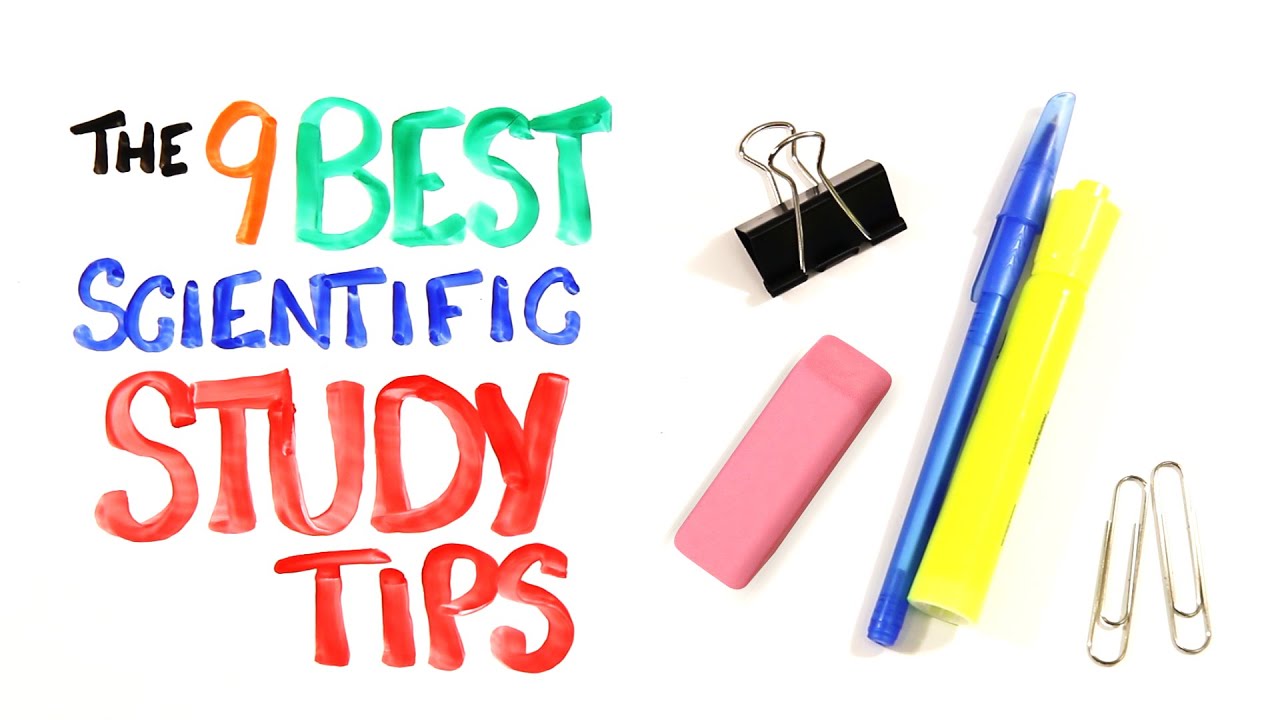 THE 9 BEST
SCIENTIFIC
STUDY
TIPS